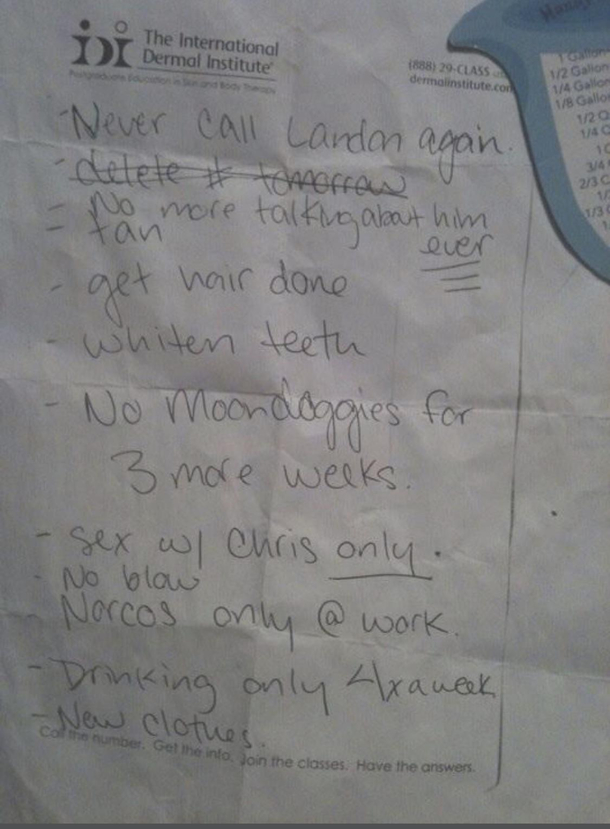 The International
Dermal Institute
Postgraduate Education in Skin and Body Therapy
(888) 29-CLASS
dermalinstitute.com
1 Gallon
1/2 Gallon
1/4 Gallon
1/8 Gallon
1/2 Q
2/3 C
-Never call Landon again.
- delete # tomorrow
- No more talking about him
ever
- tan
- get hair done
- whiten teeth
- No Moondoggies for
3 more weeks.
- sex w/ Chris only.
- No blow
Narcos only @ work.
- Drinking only 4xaweek
- New clothes.
Call the number. Get the info. Join the classes. Have the answers.